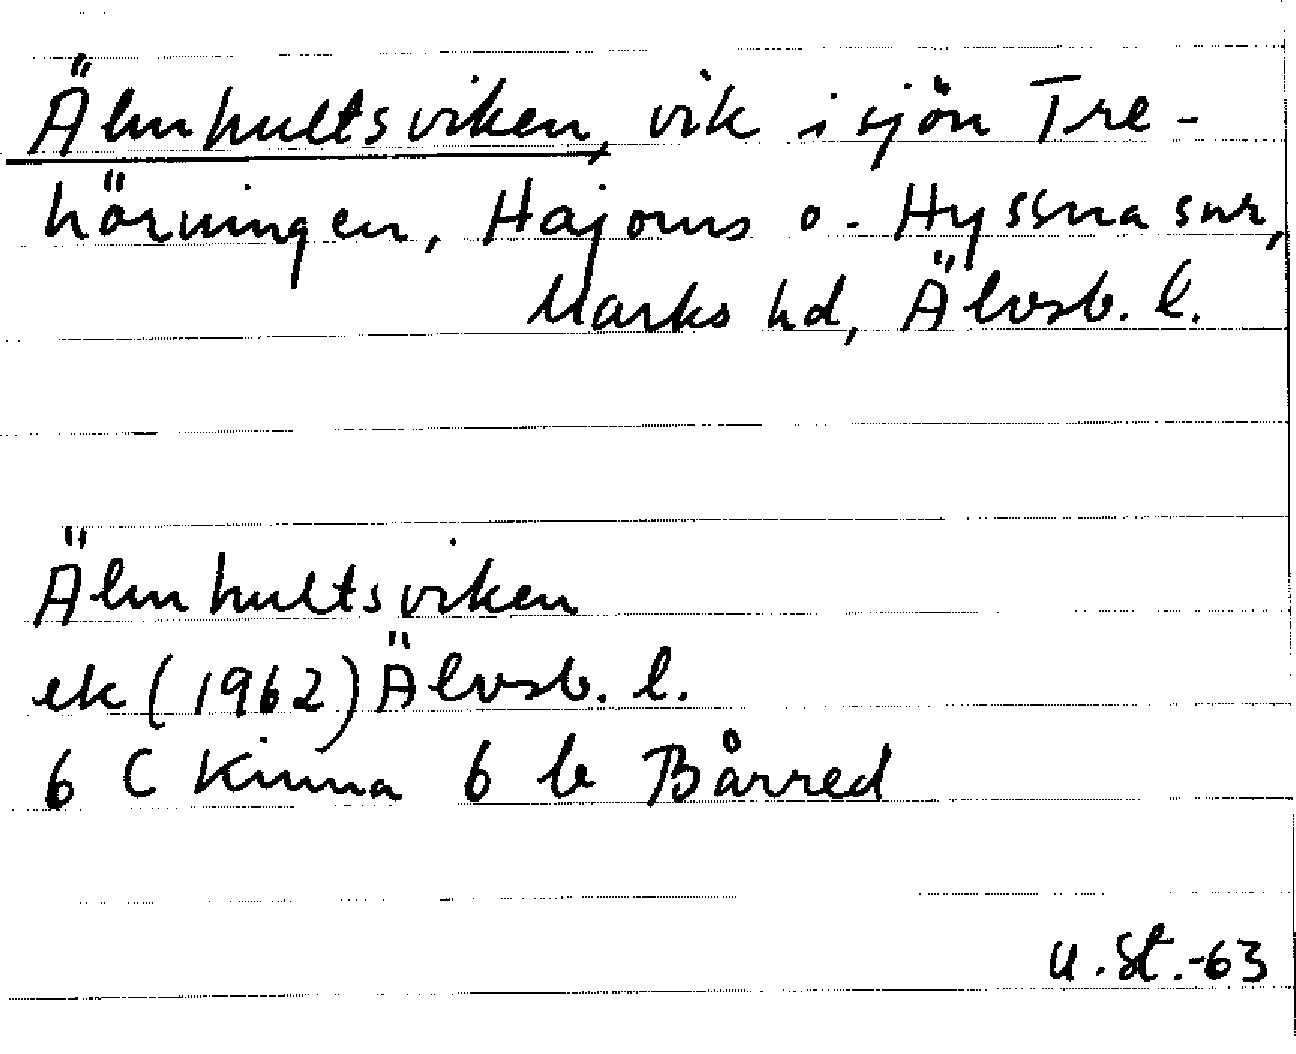 Älmhultsviken, vik i sjön Tre-
hörningen, Hajoms o. Hyssna snr,
Marks hd, Älvsb. l.
Älmhultsviken
ek (1962) Älvsb. l.
6 C Kinna 6 b Bårred
U. St. -63